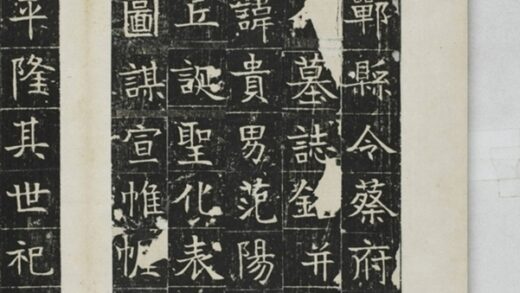 鄲縣令蔡府
墓誌銘并
諱貴男范陽
丘誕聖化表
圖謀宣帷幄
平隆其世祀